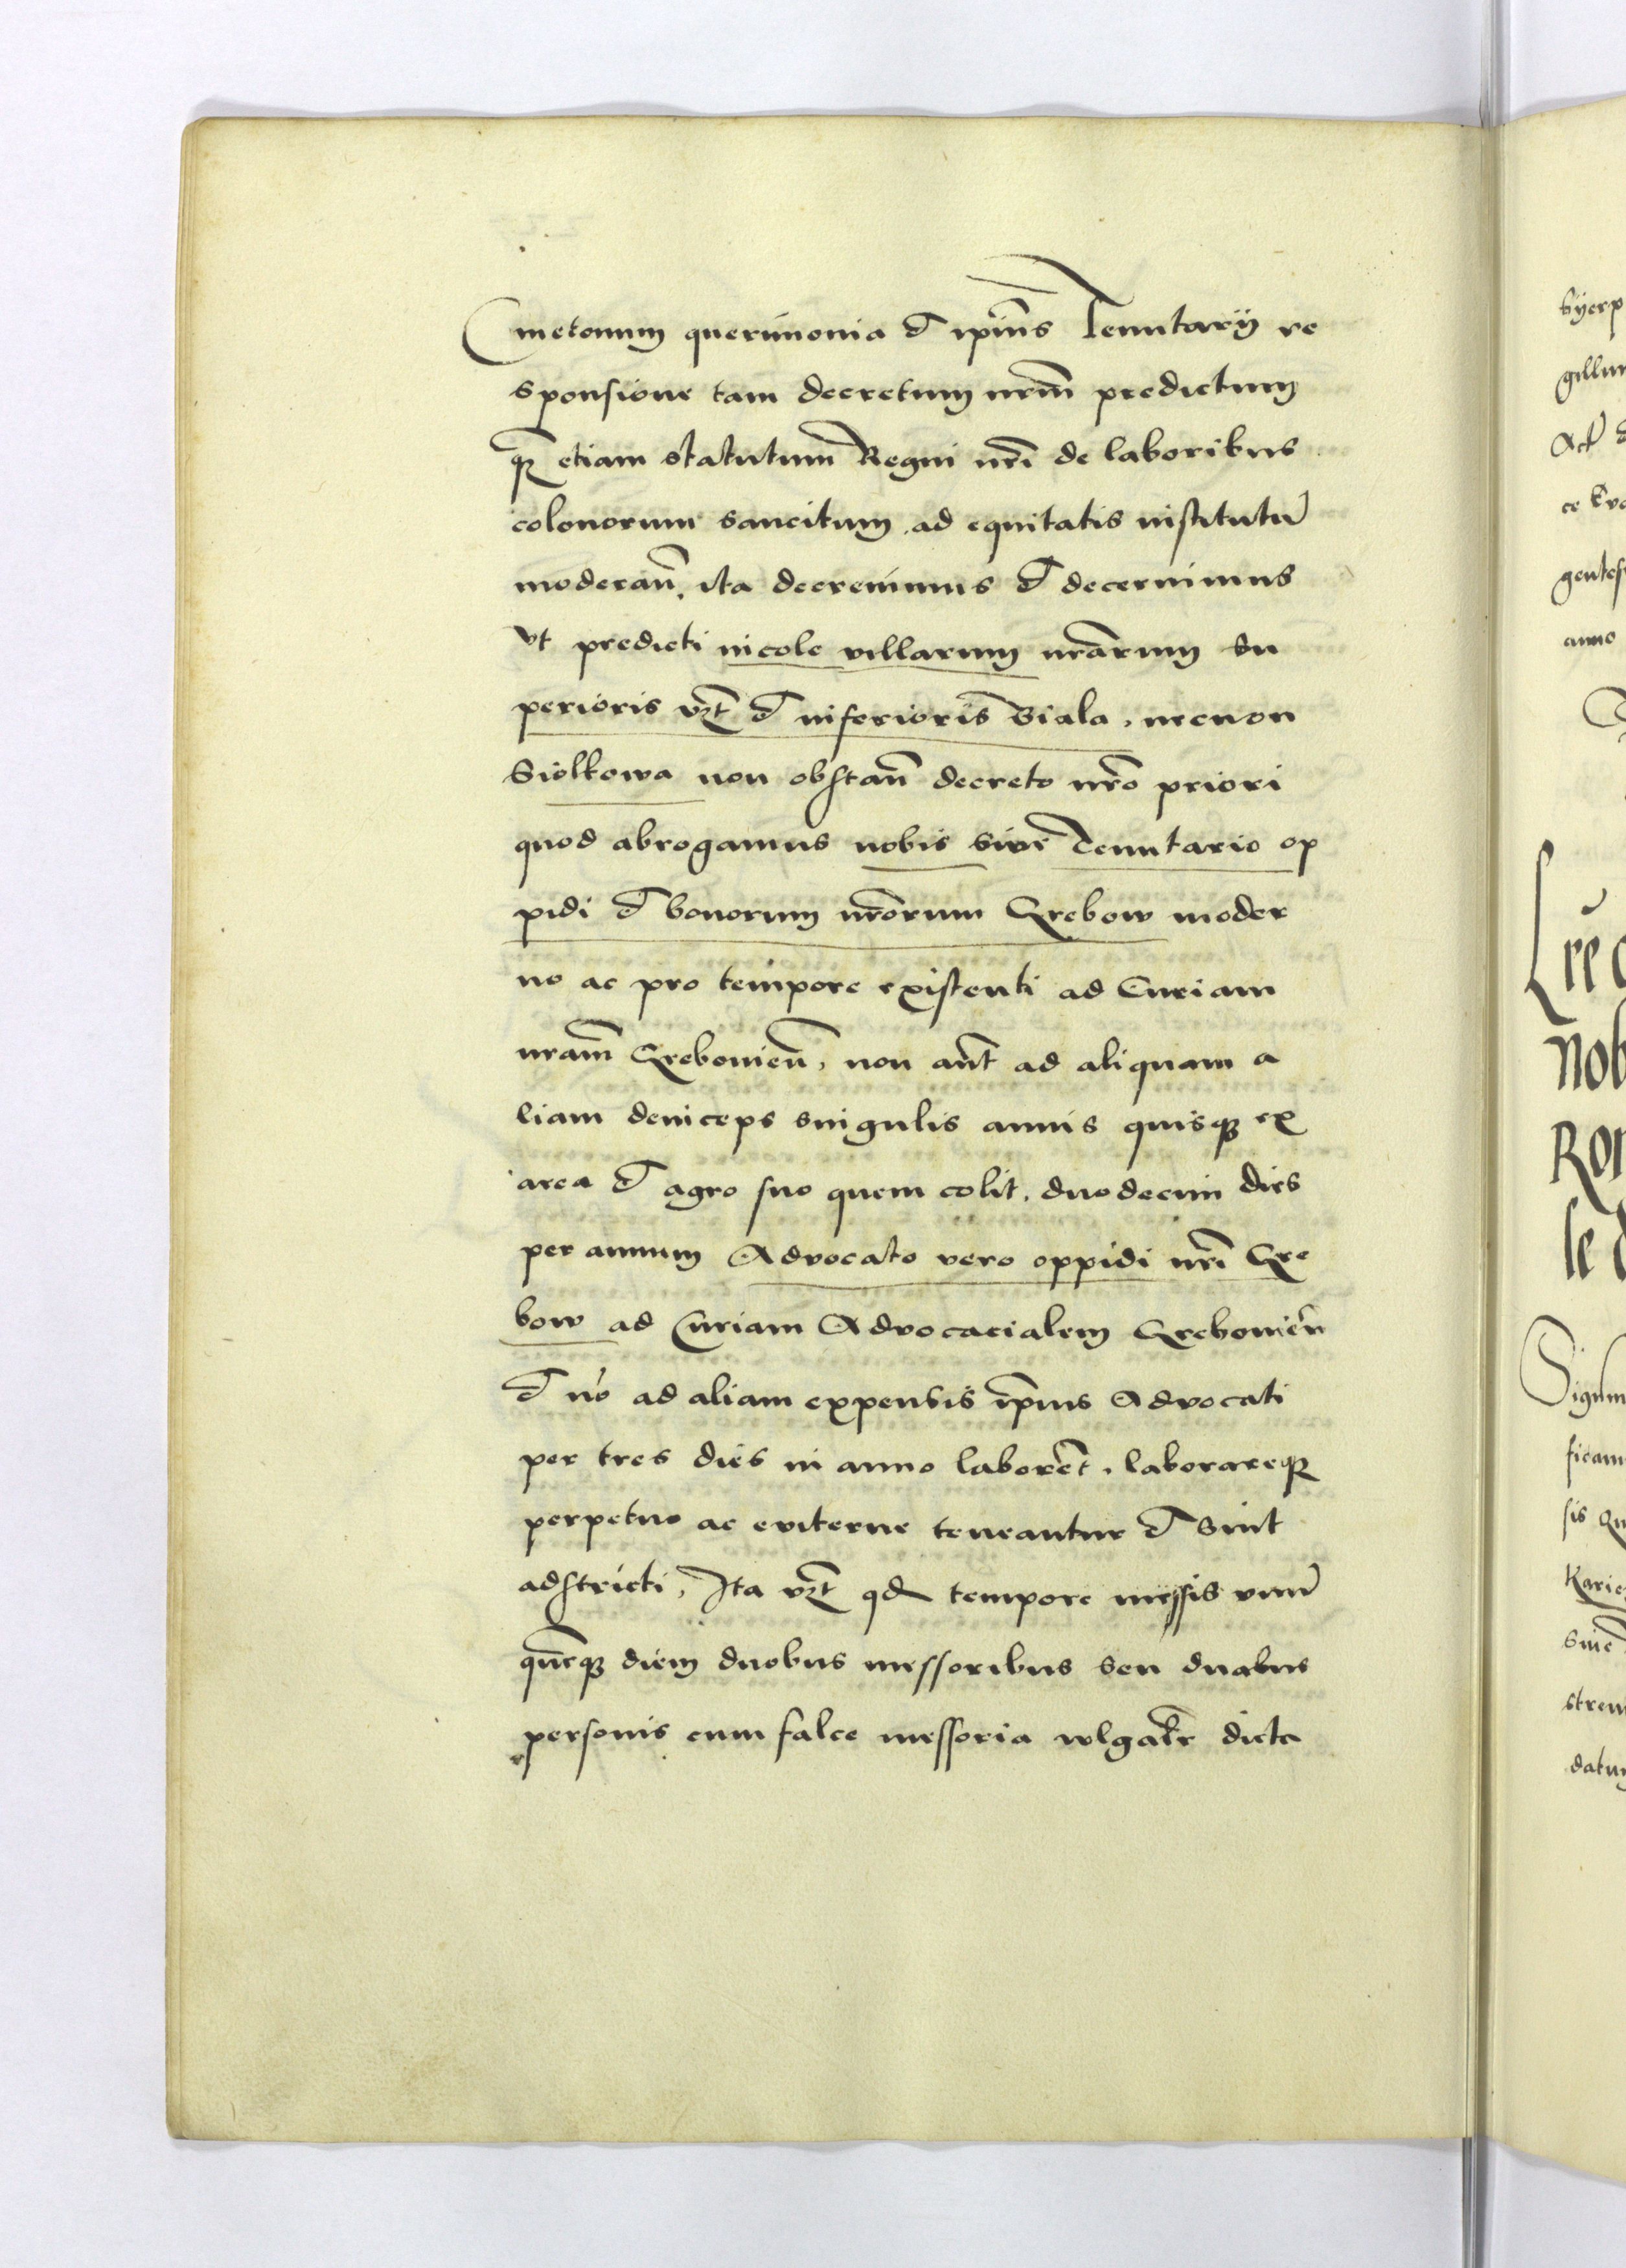 Cmetonum querimonia et ip̄ius Tenutarij re
sponsione tam decretum nrm̄ predictum
q̄ etiam statutum Regni nrī de laboribus
colonorum sancitum ad equitatis institutū
moderan̄. ita decrevimus et decernimus
vt predicti incole villarum nrārum su
perioris vzt̄ et inferioris Biala, necnon
Siolkowa non obstan̄ decreto nrō priori
quod abrogamus nobis sive Tenutario op
pidi et bonorum nrōrum Grebow moder
no ac pro tempore existenti ad Curiam
nrām Grebovien̄, non aūt ad aliquam a
liam deinceps singulis annis quisq3 ex
area et agro suo quem colit, duodecim dies
per annum Advocato vero oppidi nrī Gre
bow ad Curiam Advocacialem Grebovien̄
et nō ad aliam expensis ip̄ius Advocati
per tres dies in anno laborēt, laborareq3
perpetuo ac eviterne teneantur et sint
adstricti, Ita vzt̄ qd tempore messis unū
quēq3 diem duobus messoribus seu duabus
personis cum falce messoria wlgalr̄ dicta
gillum
anno
Lrē
nob
Rom
le
Signum
ficam
sis
datum